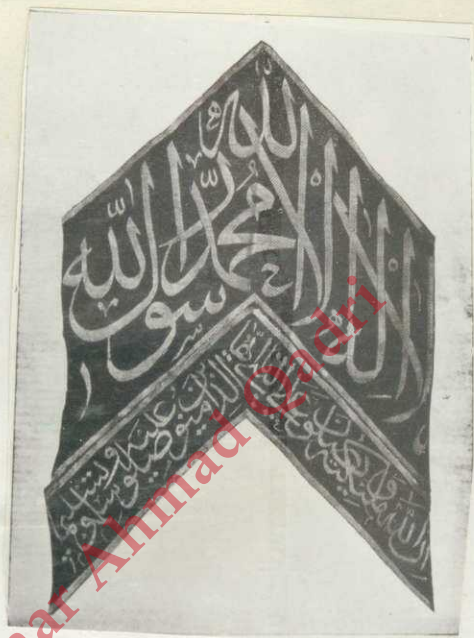 لا إله إلا الله محمد رسول الله
إن الله وملئكته يصلون على النبي يا أيها الذين آمنوا صلوا عليه وسلموا تسليما
Ahmad Qadri